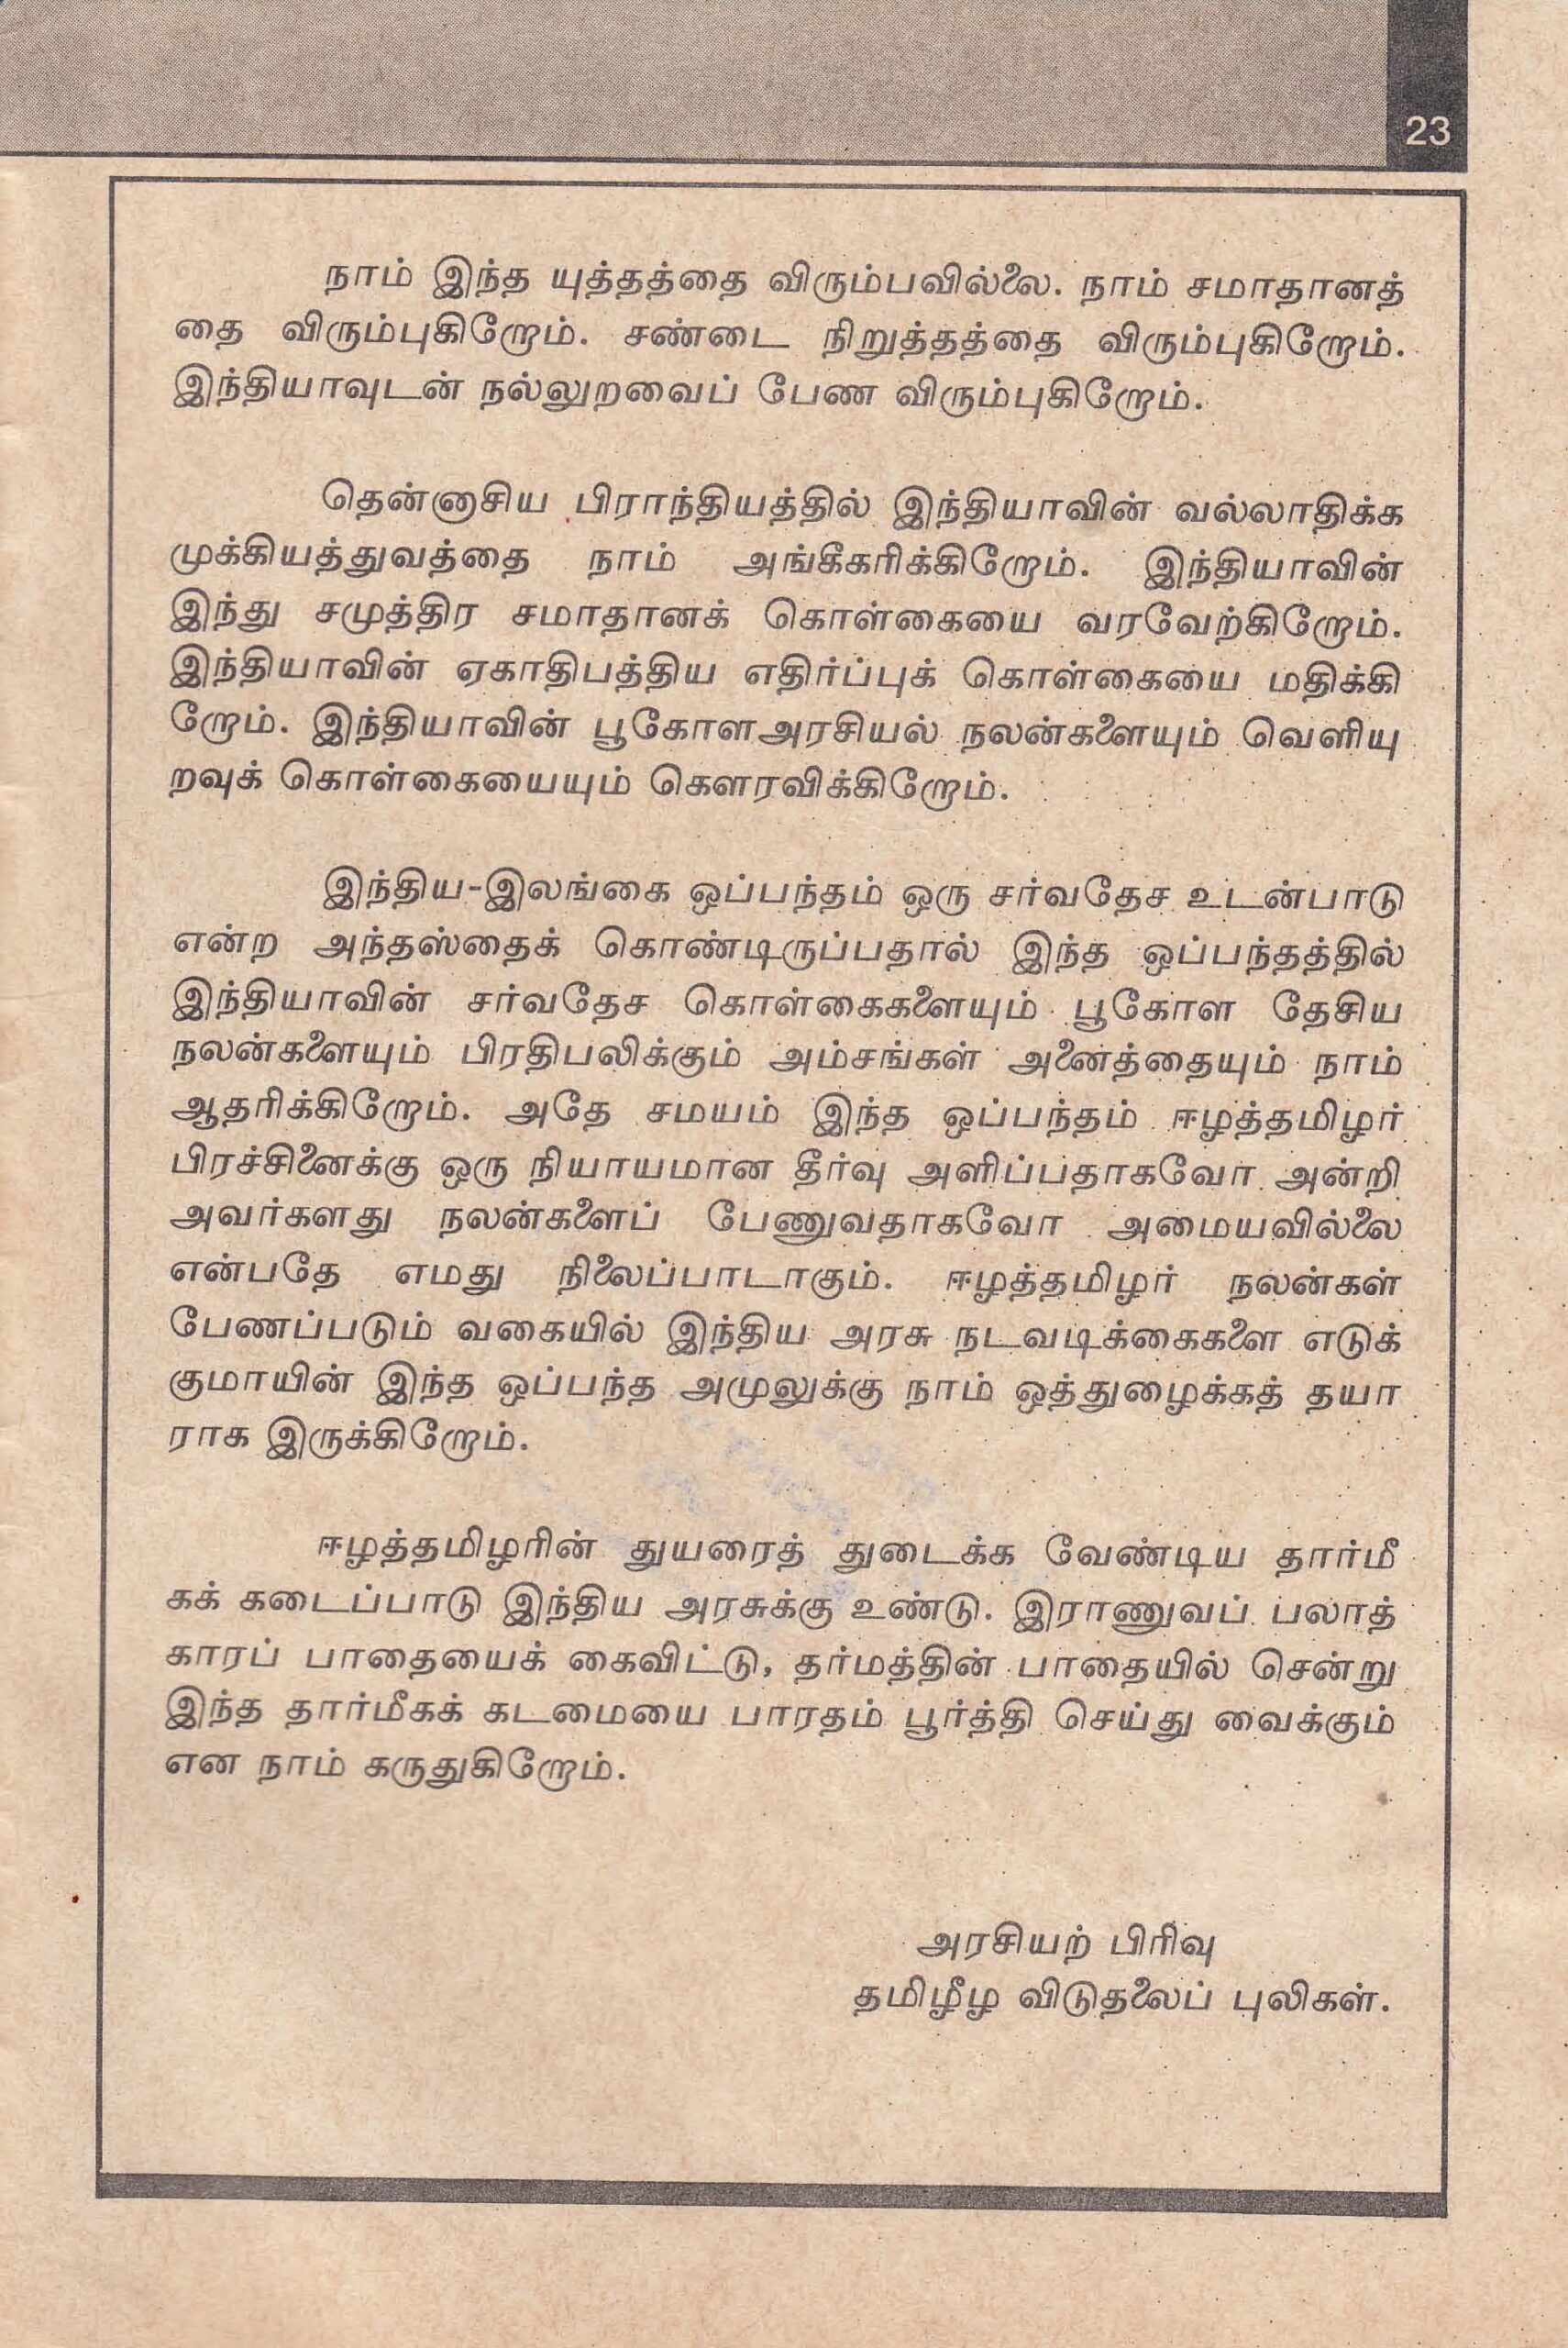 23
நாம் இந்த யுத்தத்தை விரும்பவில்லை. நாம் சமாதானத்
தை விரும்புகிறோம். சண்டை நிறுத்தத்தை விரும்புகிறோம்.
இந்தியாவுடன் நல்லுறவைப் பேண விரும்புகிறோம்.
தென்னாசிய பிராந்தியத்தில் இந்தியாவின் வல்லாதிக்க
முக்கியத்துவத்தை நாம் அங்கீகரிக்கிறோம். இந்தியாவின்
இந்து சமுத்திர சமாதானக் கொள்கையை வரவேற்கிறோம்.
இந்தியாவின் ஏகாதிபத்திய எதிர்ப்புக் கொள்கையை மதிக்கி
றோம். இந்தியாவின் பூகோளஅரசியல் நலன்களையும் வெளியு
றவுக் கொள்கையையும் கௌரவிக்கிறோம்.
இந்திய-இலங்கை ஒப்பந்தம் ஒரு சர்வதேச உடன்பாடு
என்ற அந்தஸ்தைக் கொண்டிருப்பதால் இந்த ஒப்பந்தத்தில்
இந்தியாவின் சர்வதேச கொள்கைகளையும் பூகோள தேசிய
நலன்களையும் பிரதிபலிக்கும் அம்சங்கள் அனைத்தையும் நாம்
ஆதரிக்கிறோம். அதே சமயம் இந்த ஒப்பந்தம் ஈழத்தமிழர்
பிரச்சினைக்கு ஒரு நியாயமான தீர்வு அளிப்பதாகவோ அன்றி
அவர்களது நலன்களைப் பேணுவதாகவோ அமையவில்லை
என்பதே எமது நிலைப்பாடாகும். ஈழத்தமிழர் நலன்கள்
பேணப்படும் வகையில் இந்திய அரசு நடவடிக்கைகளை எடுக்
குமாயின் இந்த ஒப்பந்த அமுலுக்கு நாம் ஒத்துழைக்கத் தயா
ராக இருக்கிறோம்.
ஈழத்தமிழரின் துயரைத் துடைக்க வேண்டிய தார்மீ
கக் கடைப்பாடு இந்திய அரசுக்கு உண்டு. இராணுவப் பலாத்
காரப் பாதையைக் கைவிட்டு, தர்மத்தின் பாதையில் சென்று
இந்த தார்மீகக் கடமையை பாரதம் பூர்த்தி செய்து வைக்கும்
என நாம் கருதுகிறோம்.
அரசியற் பிரிவு
தமிழீழ விடுதலைப் புலிகள்.